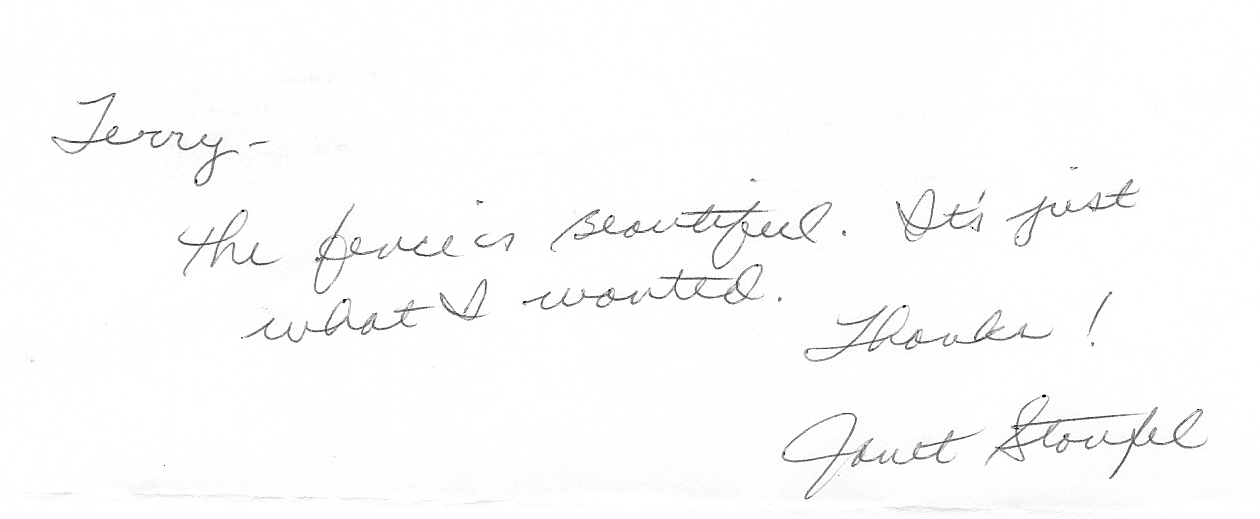 Terry-
the fence is Beautiful. It's just
what I wanted.
Thanks!
Janet